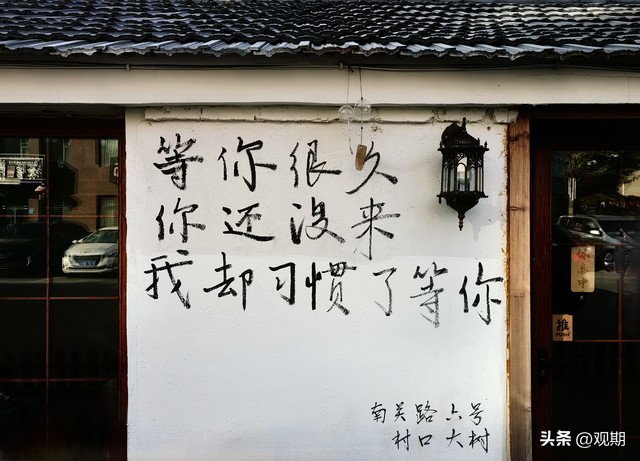 等你很久
你还没来
我却习惯了等你
南关路六号
村口大树
推
头条 @观期